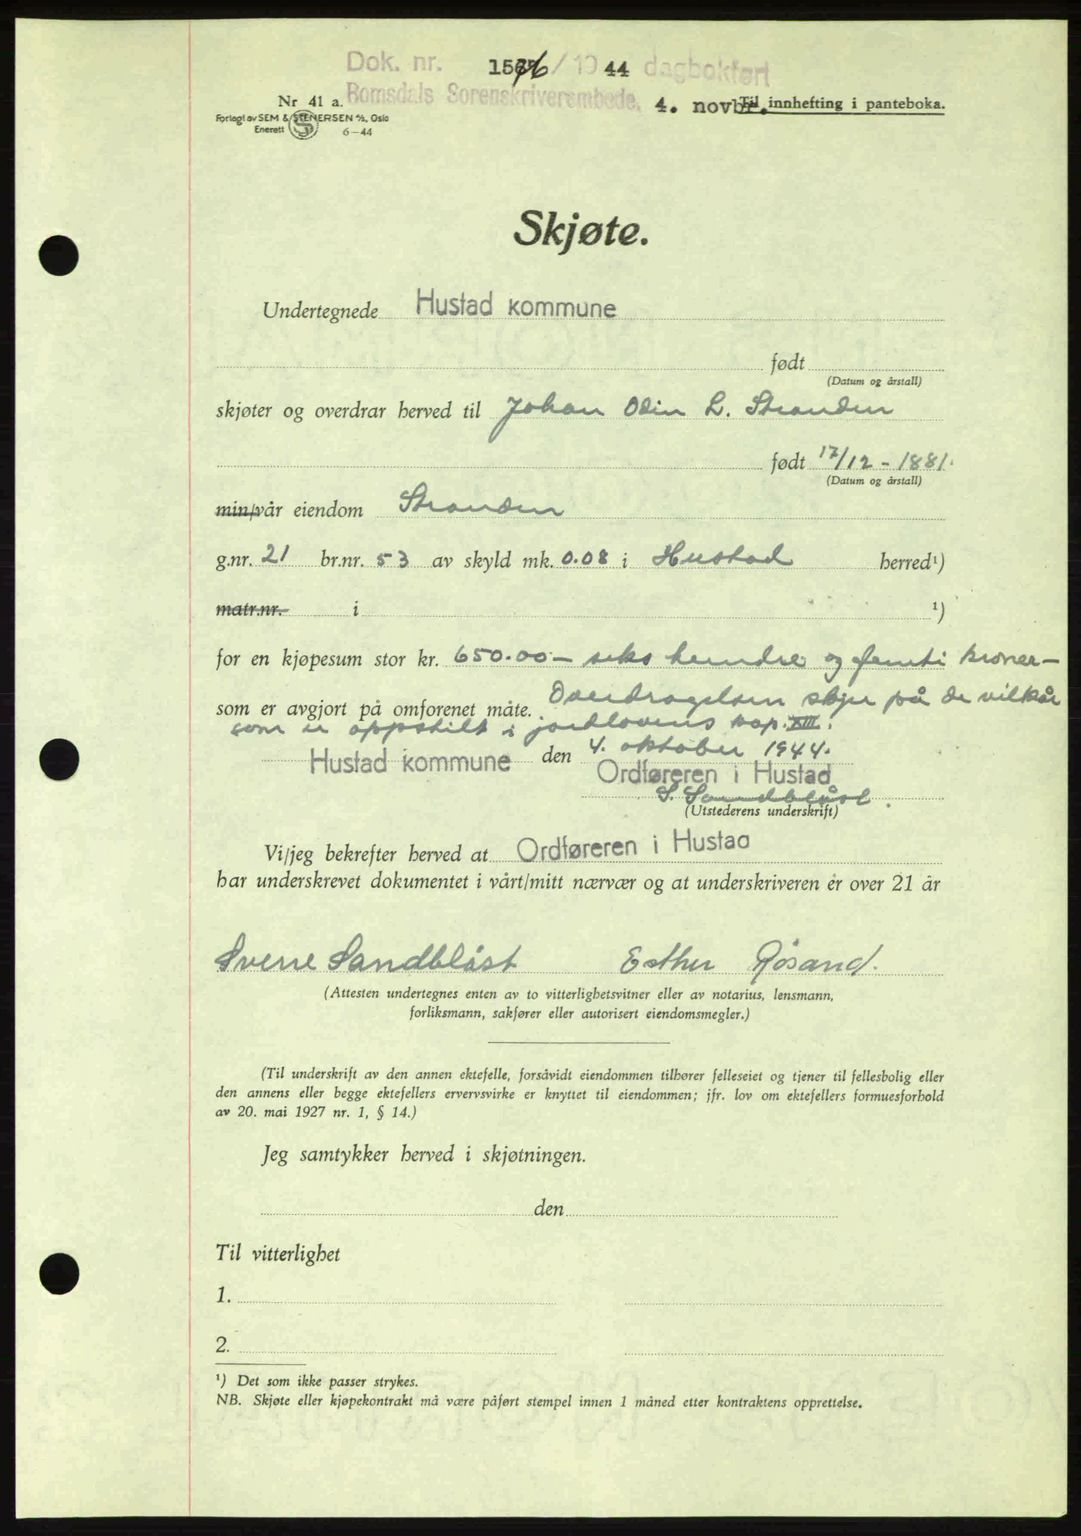 Dok. nr. 1576/1944 dagbokført
Romsdals Sorenskriverembede, 4. novbr. Til innhefting i panteboka.
Nr 41 a.
Forlagt av SEM & STENERSEN A/S, Oslo
Enerett S 6-44
Skjøte.
Undertegnede Hustad kommune
født
(Datum og årstall)
skjøter og overdrar herved til Johan Odin L. Stranden
født 17/12 - 1881.
(Datum og årstall)
min/vår eiendom Stranden
g.nr. 21 br.nr. 53 av skyld mk. 0.08 i Hustad herred¹)
matr.nr. i ¹)
for en kjøpesum stor kr. 650.00 – seks hundre og femti kroner –
som er avgjort på omforenet måte. Overdragelsen skjer på de vilkår
som er oppstilt i jordlovens kap. XIII.
Hustad kommune den 4. oktober 1944.
Ordføreren i Hustad
S. Sandblåst.
(Utstederens underskrift)
Vi/jeg bekrefter herved at Ordføreren i Hustad
har underskrevet dokumentet i vårt/mitt nærvær og at underskriveren er over 21 år
Sverre Sandblåst Esther Røsand.
(Attesten undertegnes enten av to vitterlighetsvitner eller av notarius, lensmann,
forliksmann, sakfører eller autorisert eiendomsmegler.)
(Til underskrift av den annen ektefelle, forsåvidt eiendommen tilhører felleseiet og tjener til fellesbolig eller
den annens eller begge ektefellers ervervsvirke er knyttet til eiendommen; jfr. lov om ektefellers formuesforhold
av 20. mai 1927 nr. 1, § 14.)
Jeg samtykker herved i skjøtningen.
den
Til vitterlighet
1.
2.
¹) Det som ikke passer strykes.
NB. Skjøte eller kjøpekontrakt må være påført stempel innen 1 måned etter kontraktens opprettelse.